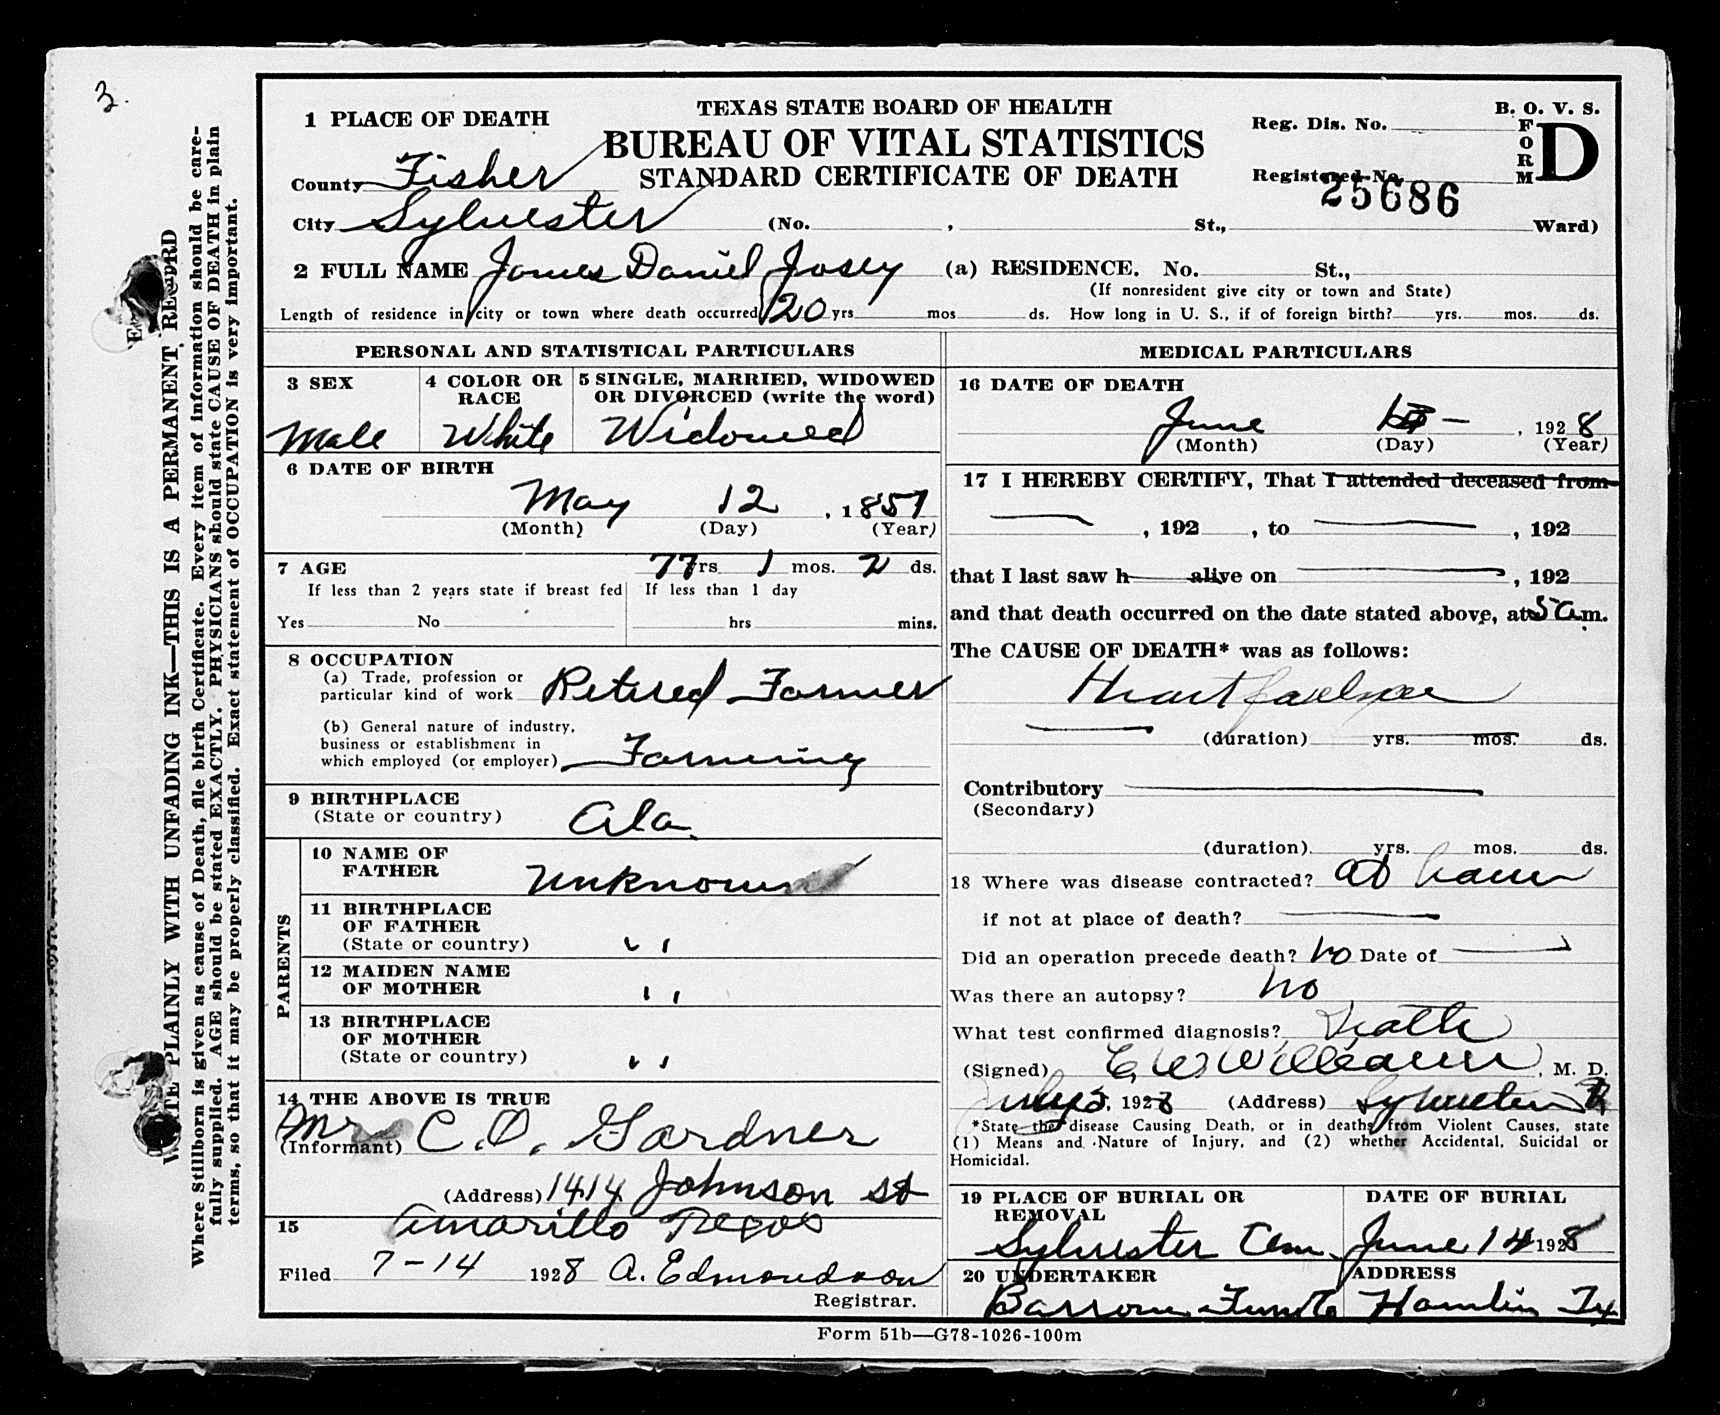 3.
WRITE PLAINLY WITH UNFADING INK—THIS IS A PERMANENT RECORD
Where Stillborn is given as cause of Death, file birth Certificate. Every item of information should be care-
fully supplied. AGE should be stated EXACTLY. PHYSICIANS should state CAUSE OF DEATH in plain
terms, so that it may be properly classified. Exact statement of OCCUPATION is very important.
TEXAS STATE BOARD OF HEALTH
BUREAU OF VITAL STATISTICS
STANDARD CERTIFICATE OF DEATH
B. O. V. S.
FORM D
Reg. Dis. No.
Registered No. 25686
1 PLACE OF DEATH
County Fisher
City Sylvester (No. , St., Ward)
2 FULL NAME James Daniel Josey (a) RESIDENCE. No. St.,
(If nonresident give city or town and State)
Length of residence in city or town where death occurred 20 yrs mos ds. How long in U. S., if of foreign birth? yrs. mos. ds.
PERSONAL AND STATISTICAL PARTICULARS
3 SEX 4 COLOR OR RACE 5 SINGLE, MARRIED, WIDOWED OR DIVORCED (write the word)
Male White Widowed
6 DATE OF BIRTH
May 12, 1851
(Month) (Day) (Year)
7 AGE 77 yrs 1 mos. 2 ds.
If less than 2 years state if breast fed If less than 1 day
Yes No hrs mins.
8 OCCUPATION
(a) Trade, profession or
particular kind of work Retired Farmer
(b) General nature of industry,
business or establishment in
which employed (or employer) Farming
9 BIRTHPLACE
(State or country) Ala.
PARENTS
10 NAME OF
FATHER Unknown
11 BIRTHPLACE
OF FATHER
(State or country) " "
12 MAIDEN NAME
OF MOTHER " "
13 BIRTHPLACE
OF MOTHER
(State or country) " "
14 THE ABOVE IS TRUE
(Informant) Mr C. O. Gardner
(Address) 1414 Johnson St
Amarillo Texas
15
Filed 7-14 1928 A. Edmondson
Registrar.
MEDICAL PARTICULARS
16 DATE OF DEATH
June , 1928
(Month) (Day) (Year)
17 I HEREBY CERTIFY, That I attended deceased from
, 192 , to , 192
that I last saw h alive on , 192
and that death occurred on the date stated above, at 5 a.m.
The CAUSE OF DEATH* was as follows:
Heart failure
(duration) yrs. mos. ds.
Contributory
(Secondary)
(duration) yrs. mos. ds.
18 Where was disease contracted? at home
if not at place of death?
Did an operation precede death? no Date of
Was there an autopsy? no
What test confirmed diagnosis? Death
(Signed) E. W. Williams, M. D.
July , 1928 (Address) Sylvester
*State the disease Causing Death, or in deaths from Violent Causes, state
(1) Means and Nature of Injury, and (2) whether Accidental, Suicidal or
Homicidal.
19 PLACE OF BURIAL OR REMOVAL DATE OF BURIAL
Sylvester Cem. June 14 1928
20 UNDERTAKER ADDRESS
Barrow Hamlin Tx
Form 51b—G78-1026-100m